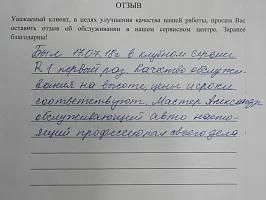 ОТЗЫВ
Уважаемый клиент, в целях улучшения качества нашей работы, просим Вас
оставить отзыв об обслуживании в нашем сервисном центре. Заранее
благодарны!
Был 17.07.18г в клубном сервисе
R1 первый раз. Качество обслужи-
вания на высоте, цены и сроки
соответствуют. Мастер Александр
обслуживающий авто насто-
ящий профессионал своего дела.